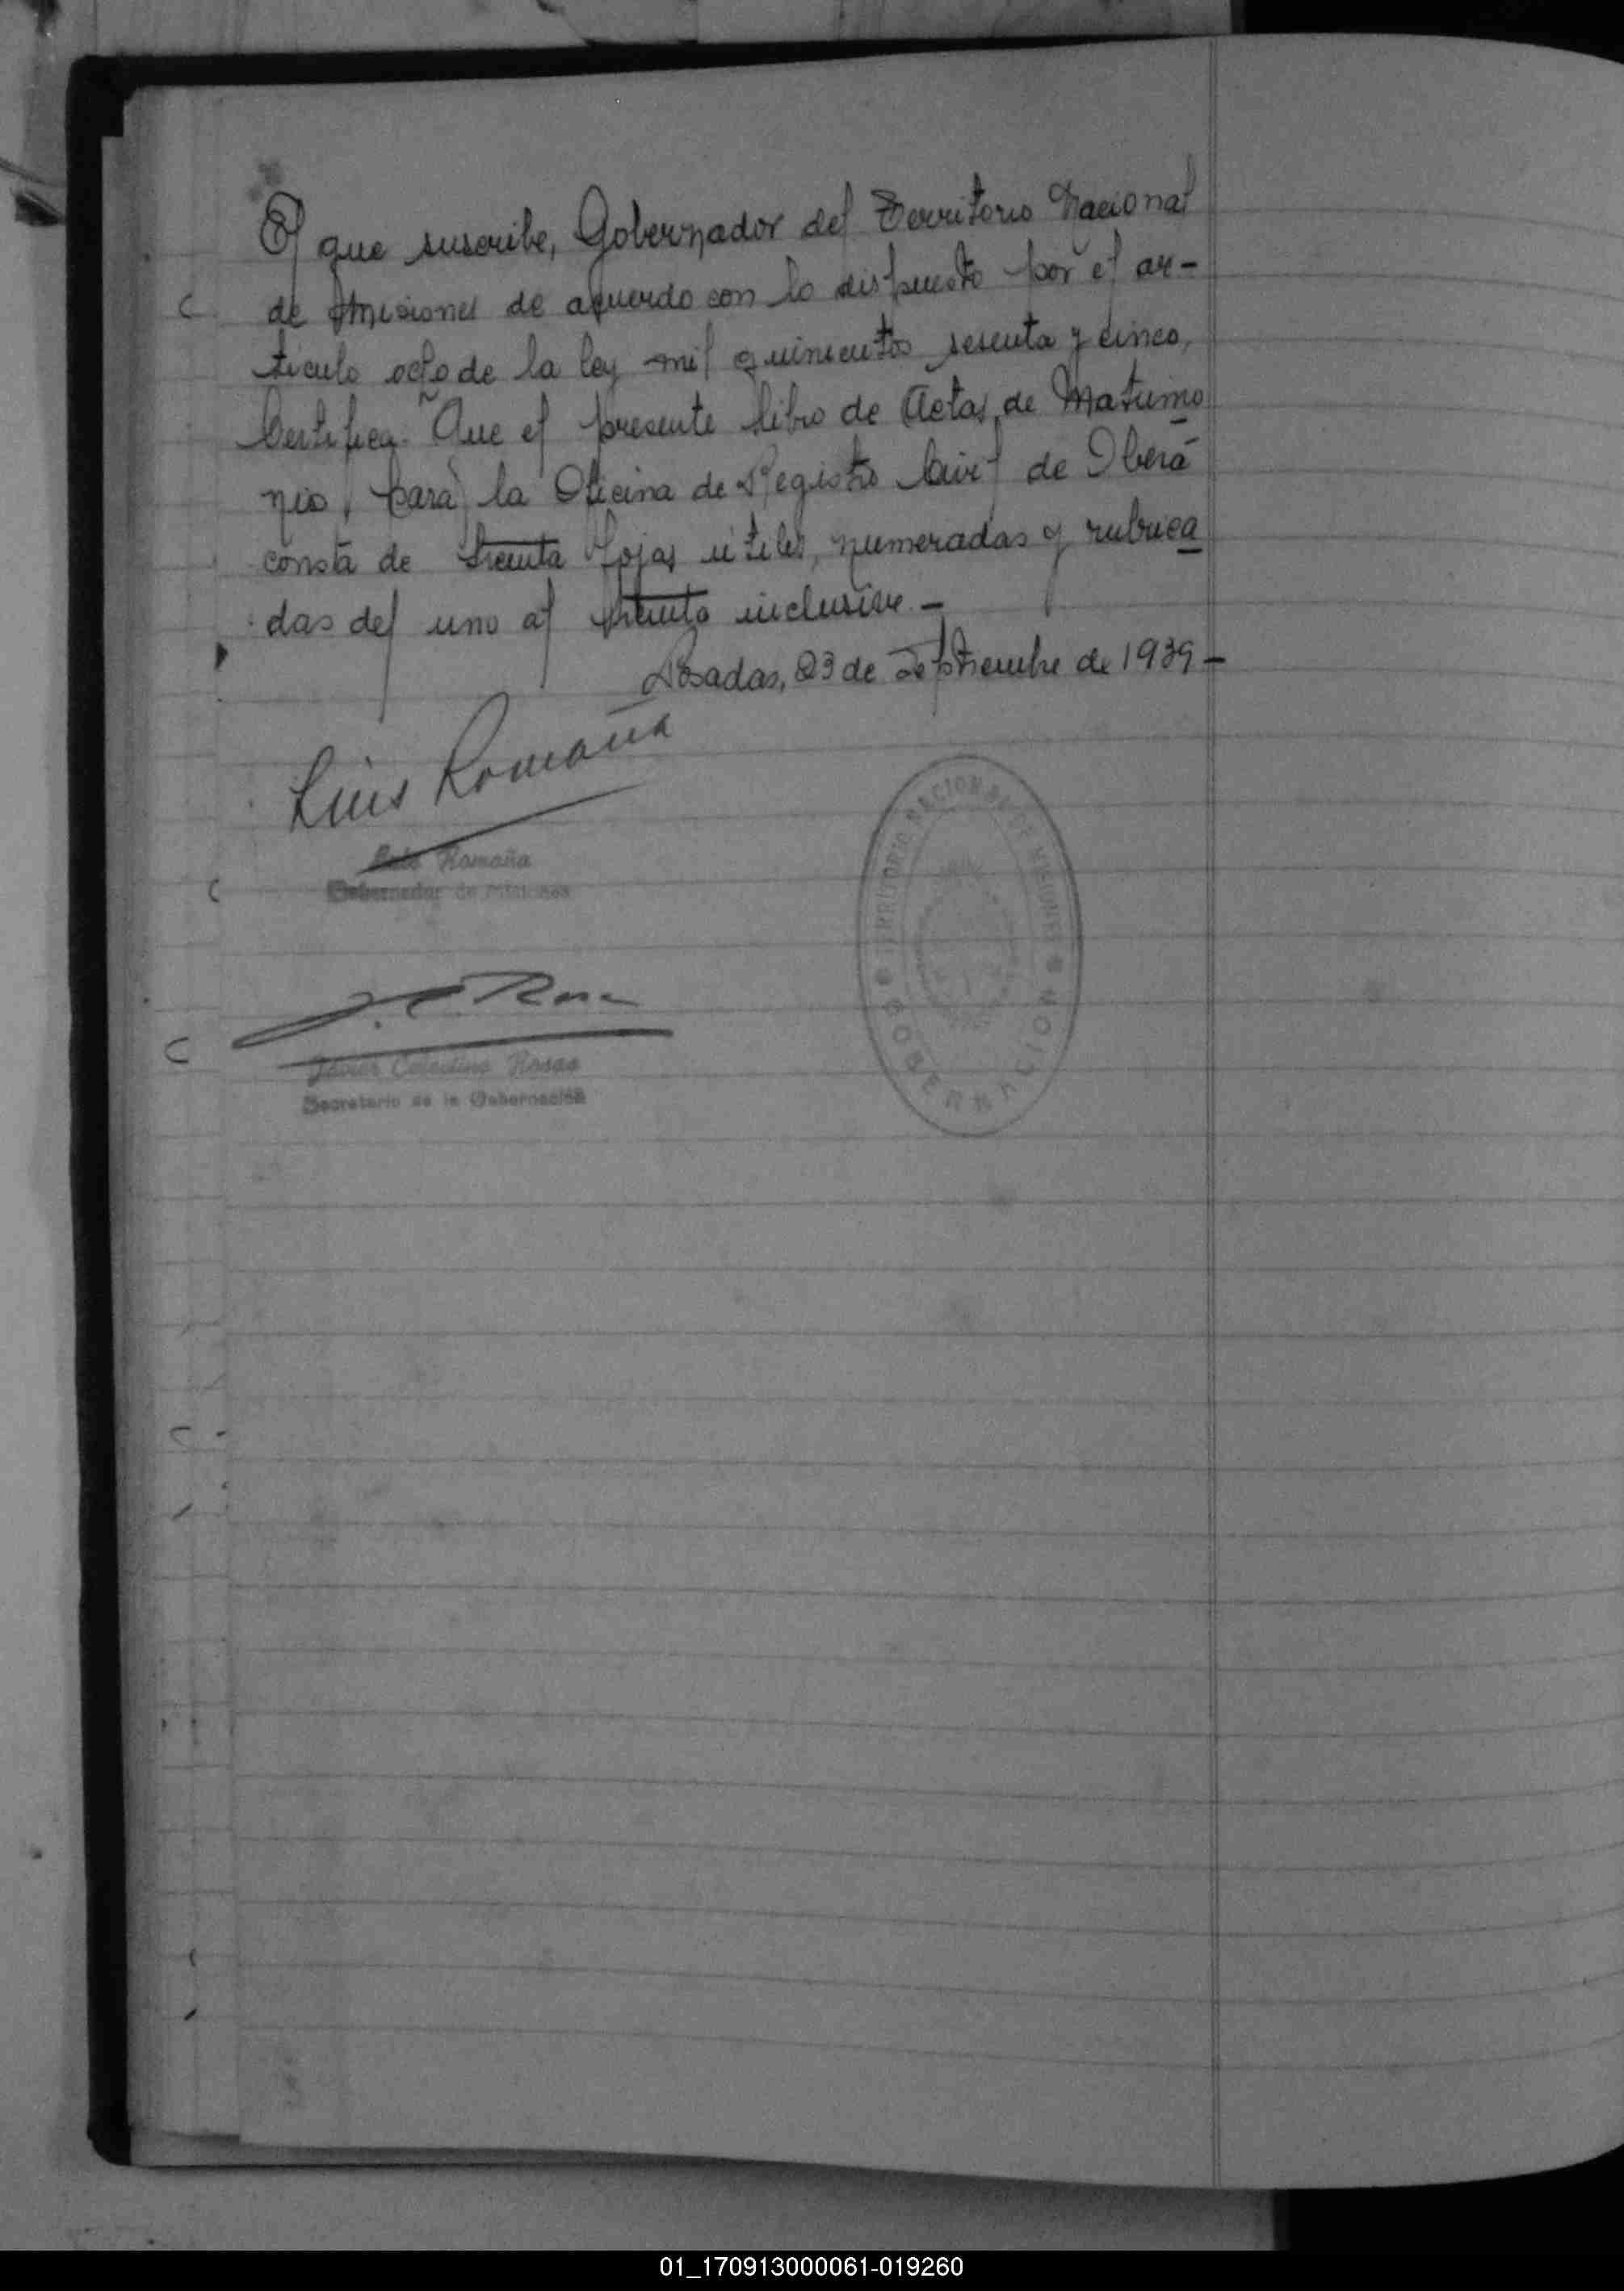 El que suscribe, Gobernador del Territorio Nacional
de Misiones de acuerdo con lo dispuesto por el ar-
tículo ocho de la ley mil quinientos sesenta y cinco,
Certifica: Que el presente libro de Actas de Matrimo
nio, para la Oficina de Registro Civil de Oberá
consta de treinta fojas útiles, numeradas y rubrica
das del uno al treinta inclusive.-
Posadas, 23 de Septiembre de 1939-
Luis Romaña
Luis Romaña
Gobernador de Misiones
J. C. Rosas
Javier Celestino Rosas
Secretario de la Gobernación
TERRITORIO NACIONAL DE MISIONES
GOBERNACION
01_170913000061-019260